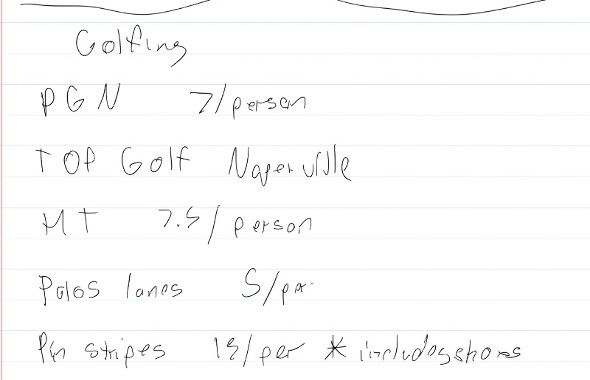 Golfing
PGN 7/person
TOP Golf Naperville
MT 7.5/person
Palos lanes 5/per
Pin stripes 15/per * includes shoes